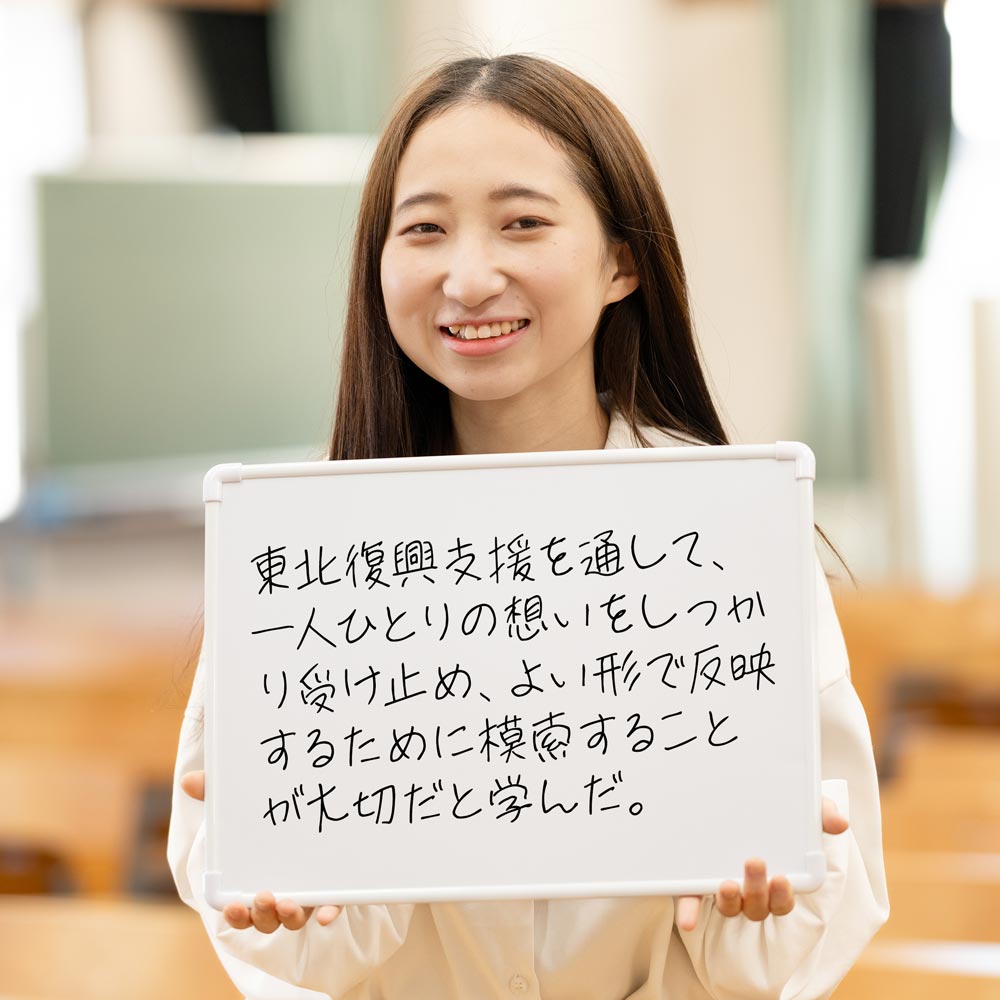 東北復興支援を通して、
一人ひとりの想いをしっか
り受け止め、よい形で反映
するために模索すること
が大切だと学んだ。